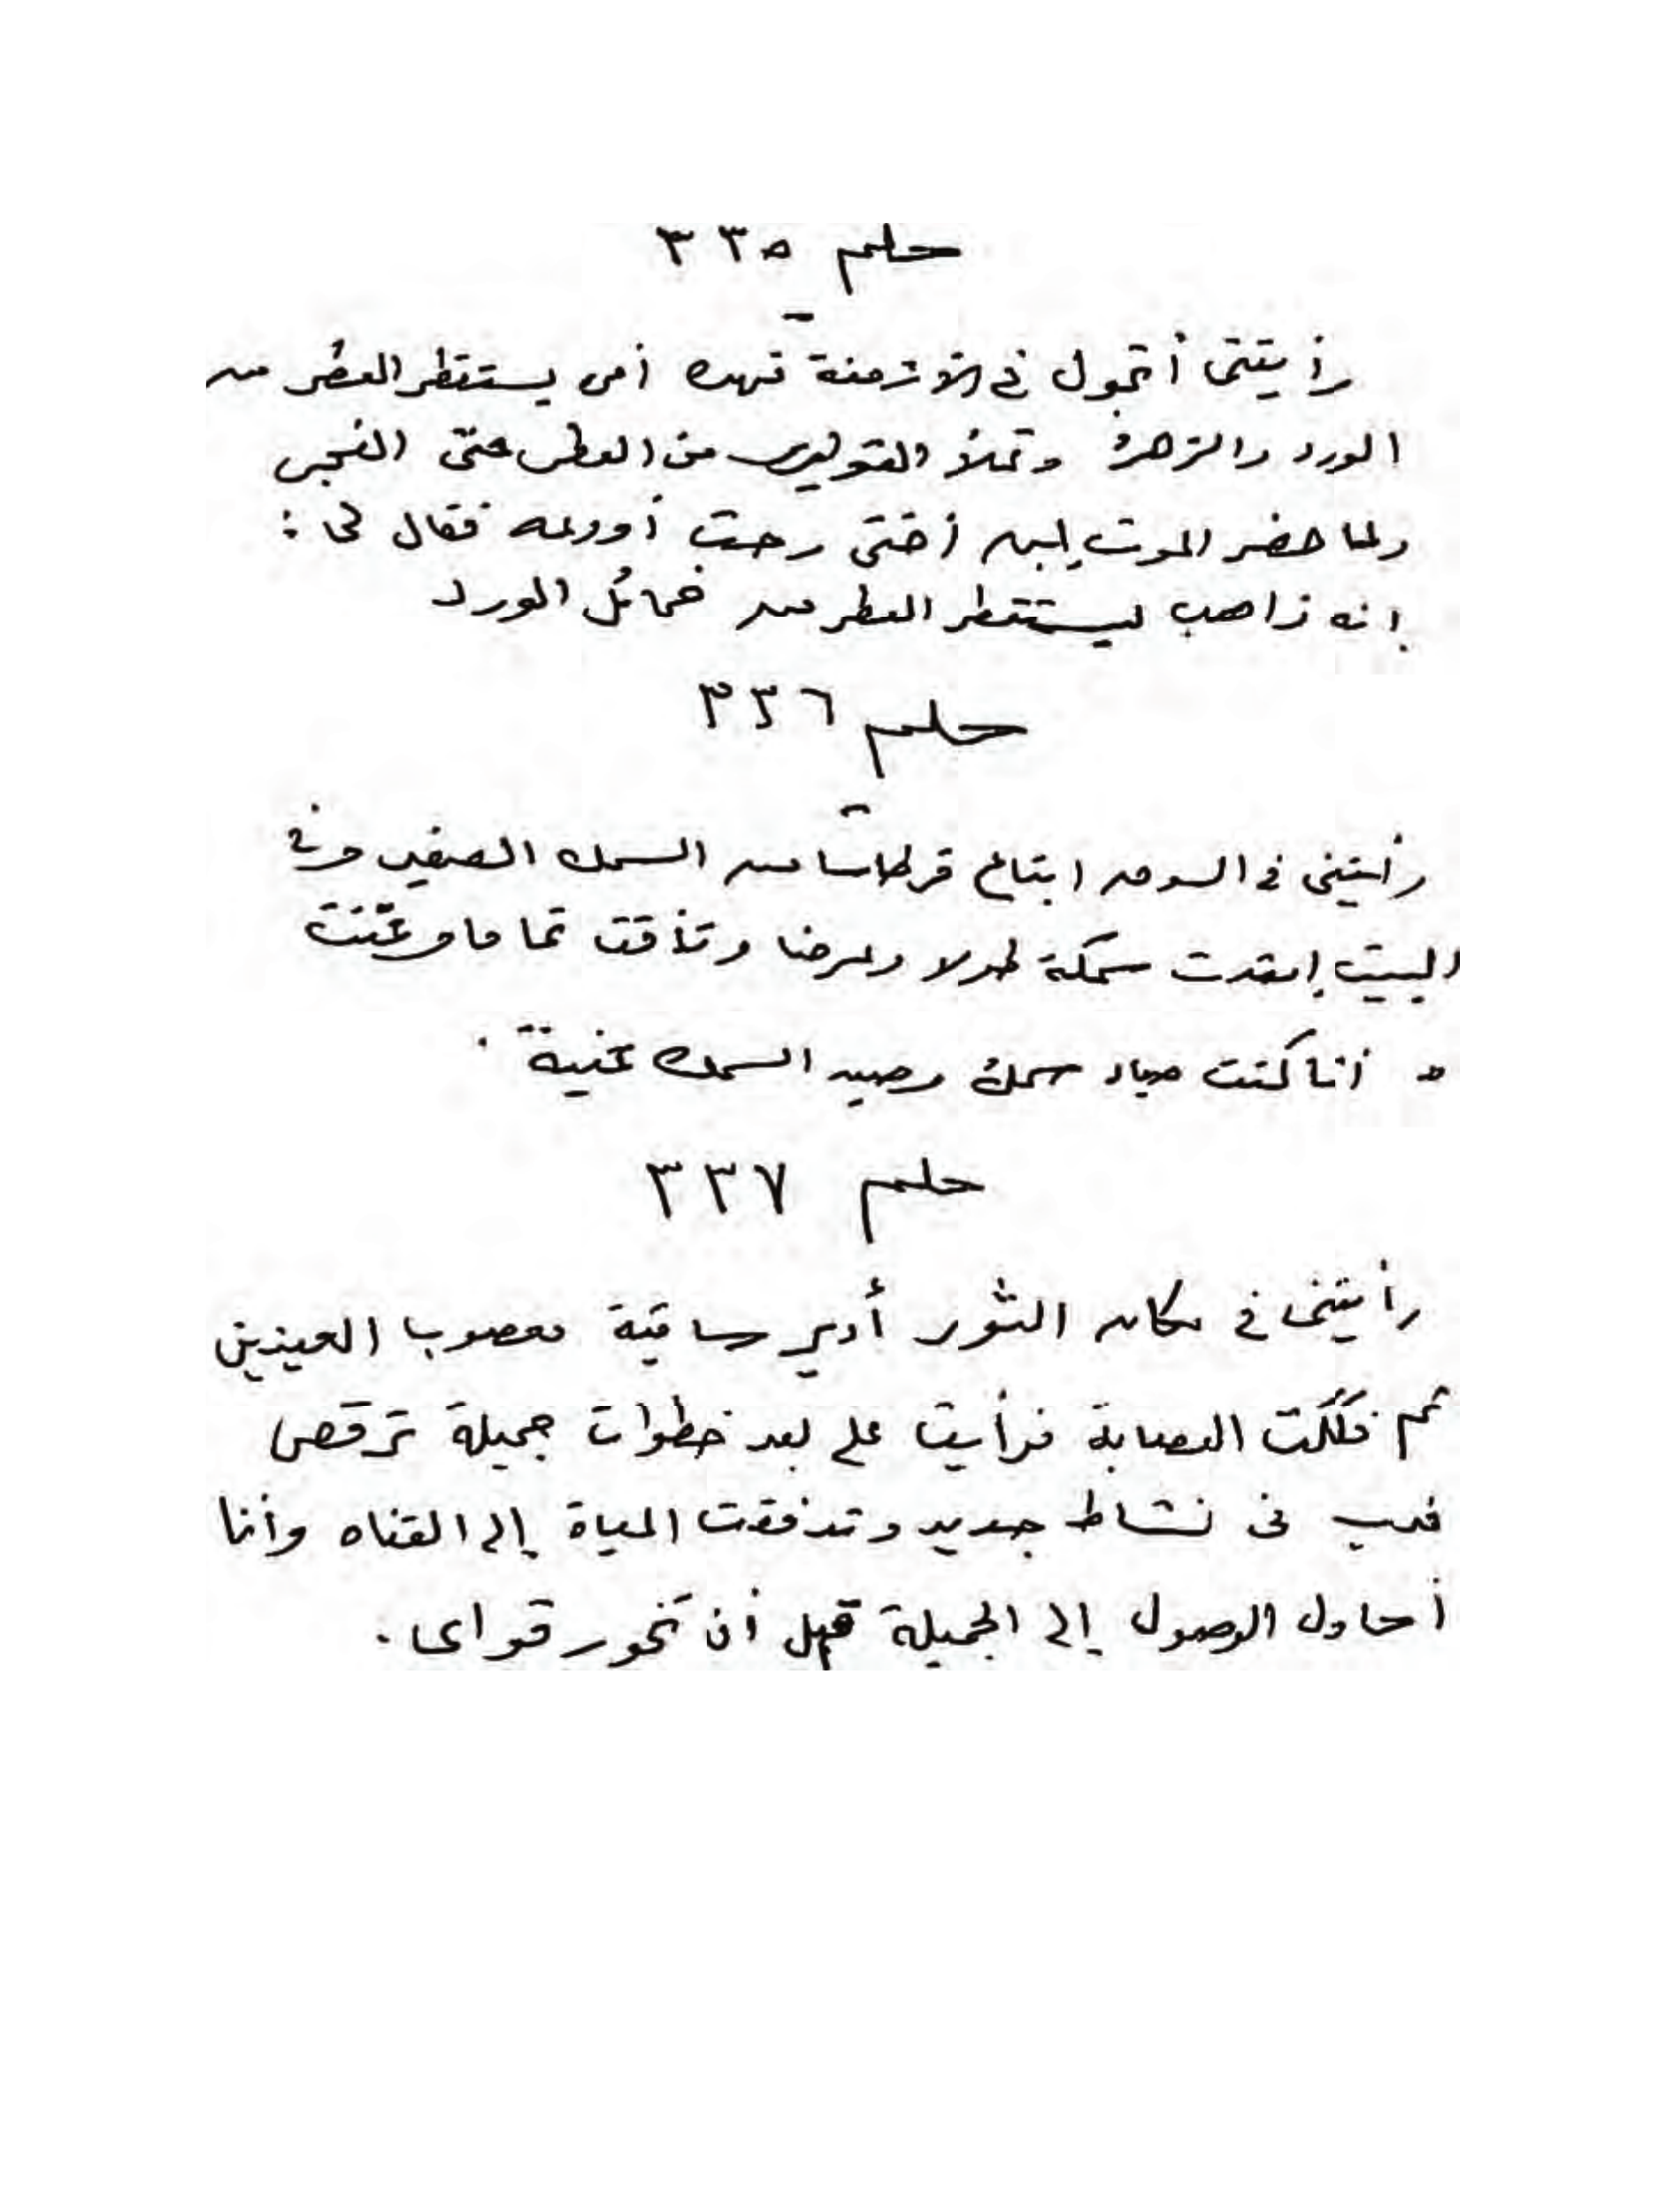 حلم ٣٣٥
رأيتنى أتجول فى الأزمنة فهذه أمى يستقطر العطر من
الورد والزهر وتملأ القوارير من العطر حتى الفجر
ولما حضر الموت إبن أختى رحت أودعه فقال لى :
إنه ذاهب ليستقطر العطر من خمائل الورد
حلم ٣٣٦
رأيتنى فى السوق ابتاع قرطاسا من السمك الصغير وفى
البيت إمتدت سمكة طولا وعرضا وتذوقت تماما وغنت
- أنا كنت صياد سمك وصيد السمك غية .
حلم ٣٣٧
رأيتنى فى مكان الثور أدير ساقية معصوب العينين
ثم فككت العصابة فرأيت على بعد خطوات جميلة ترقص
فدب فى نشاط جديد وتدفقت المياة إلى القناه وأنا
أحاول الوصول إلى الجميلة قبل أن تخور قواى .